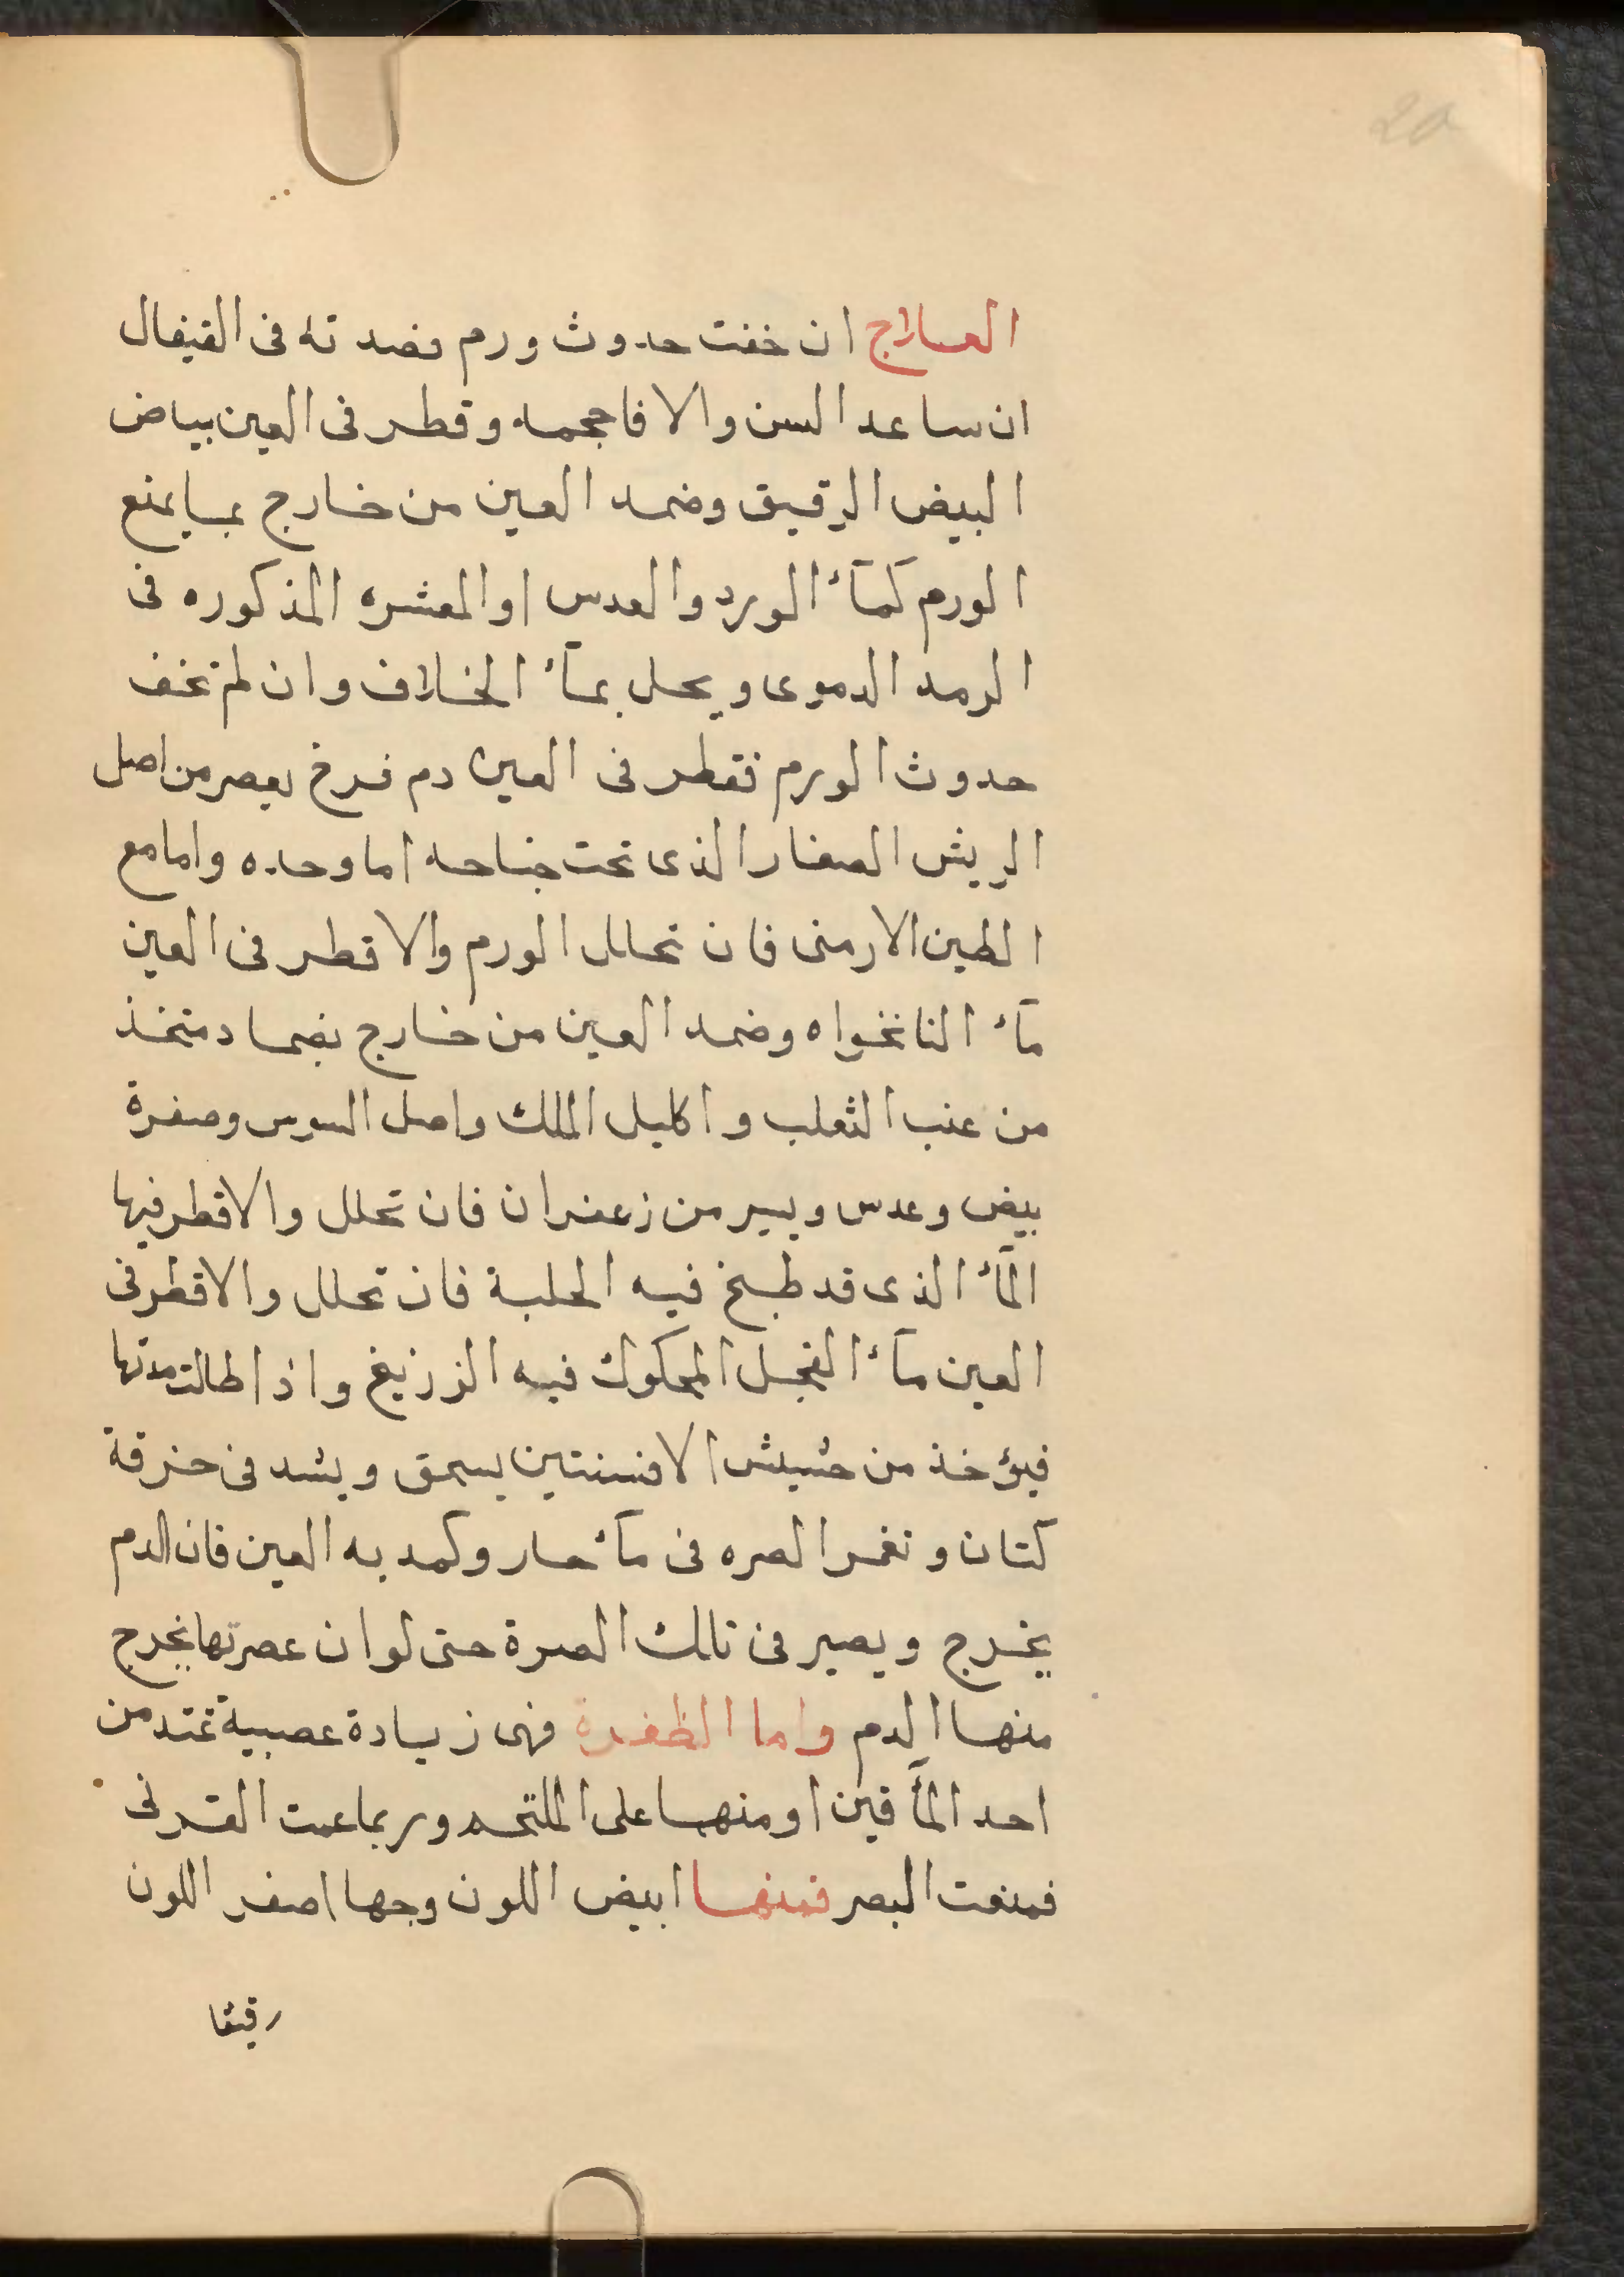 20
العلاج ان خفت حدوث ورم فصدته فى القيفال
ان ساعد السن والا فاحجمه وقطر فى العين بياض
البيض الرقيق وضمد العين من خارج بما يمنع
الورم كمآء الورد والعدس او المعشره المذكوره فى
الرمد الدموى ويحل بمآء الخلاف وان لم تخف
حدوث الورم فقطر فى العين دم فرخ يعصر من اصل
الريش الصغار الذى تحت جناحه اما وحده وامامع
الطين الارمنى فان تحلل الورم والا قطر فى العين
مآء النانخواه وضمد العين من خارج بضماد متخذ
من عنب الثعلب واكليل الملك واصل السوس وصفرة
بيض وعدس ويسير من زعفران فان تحلل والا قطر فيها
المآء الذى قد طبخ فيه الحلبة فان تحلل والا قطر فى
العين مآء الفجل المحكوك فيه الزرنيخ واذا طالت مدتها
فيؤخذ من حشيش الافسنتين يسحق ويشد فى خرقة
كتان وتغمر الصره فى مآء حار وكمد به العين فان الدم
يخرج ويصير فى تلك الصرة حتى لو ان عصرتها يخرج
منها الدم واما الظفرة فهى زيادة عصبية تمتد من
احد المآقين او منهما على الملتحمه وربما عمت القرنى
فمنعت البصر فمنها ابيض اللون وجها اصفر اللون
رقيقا